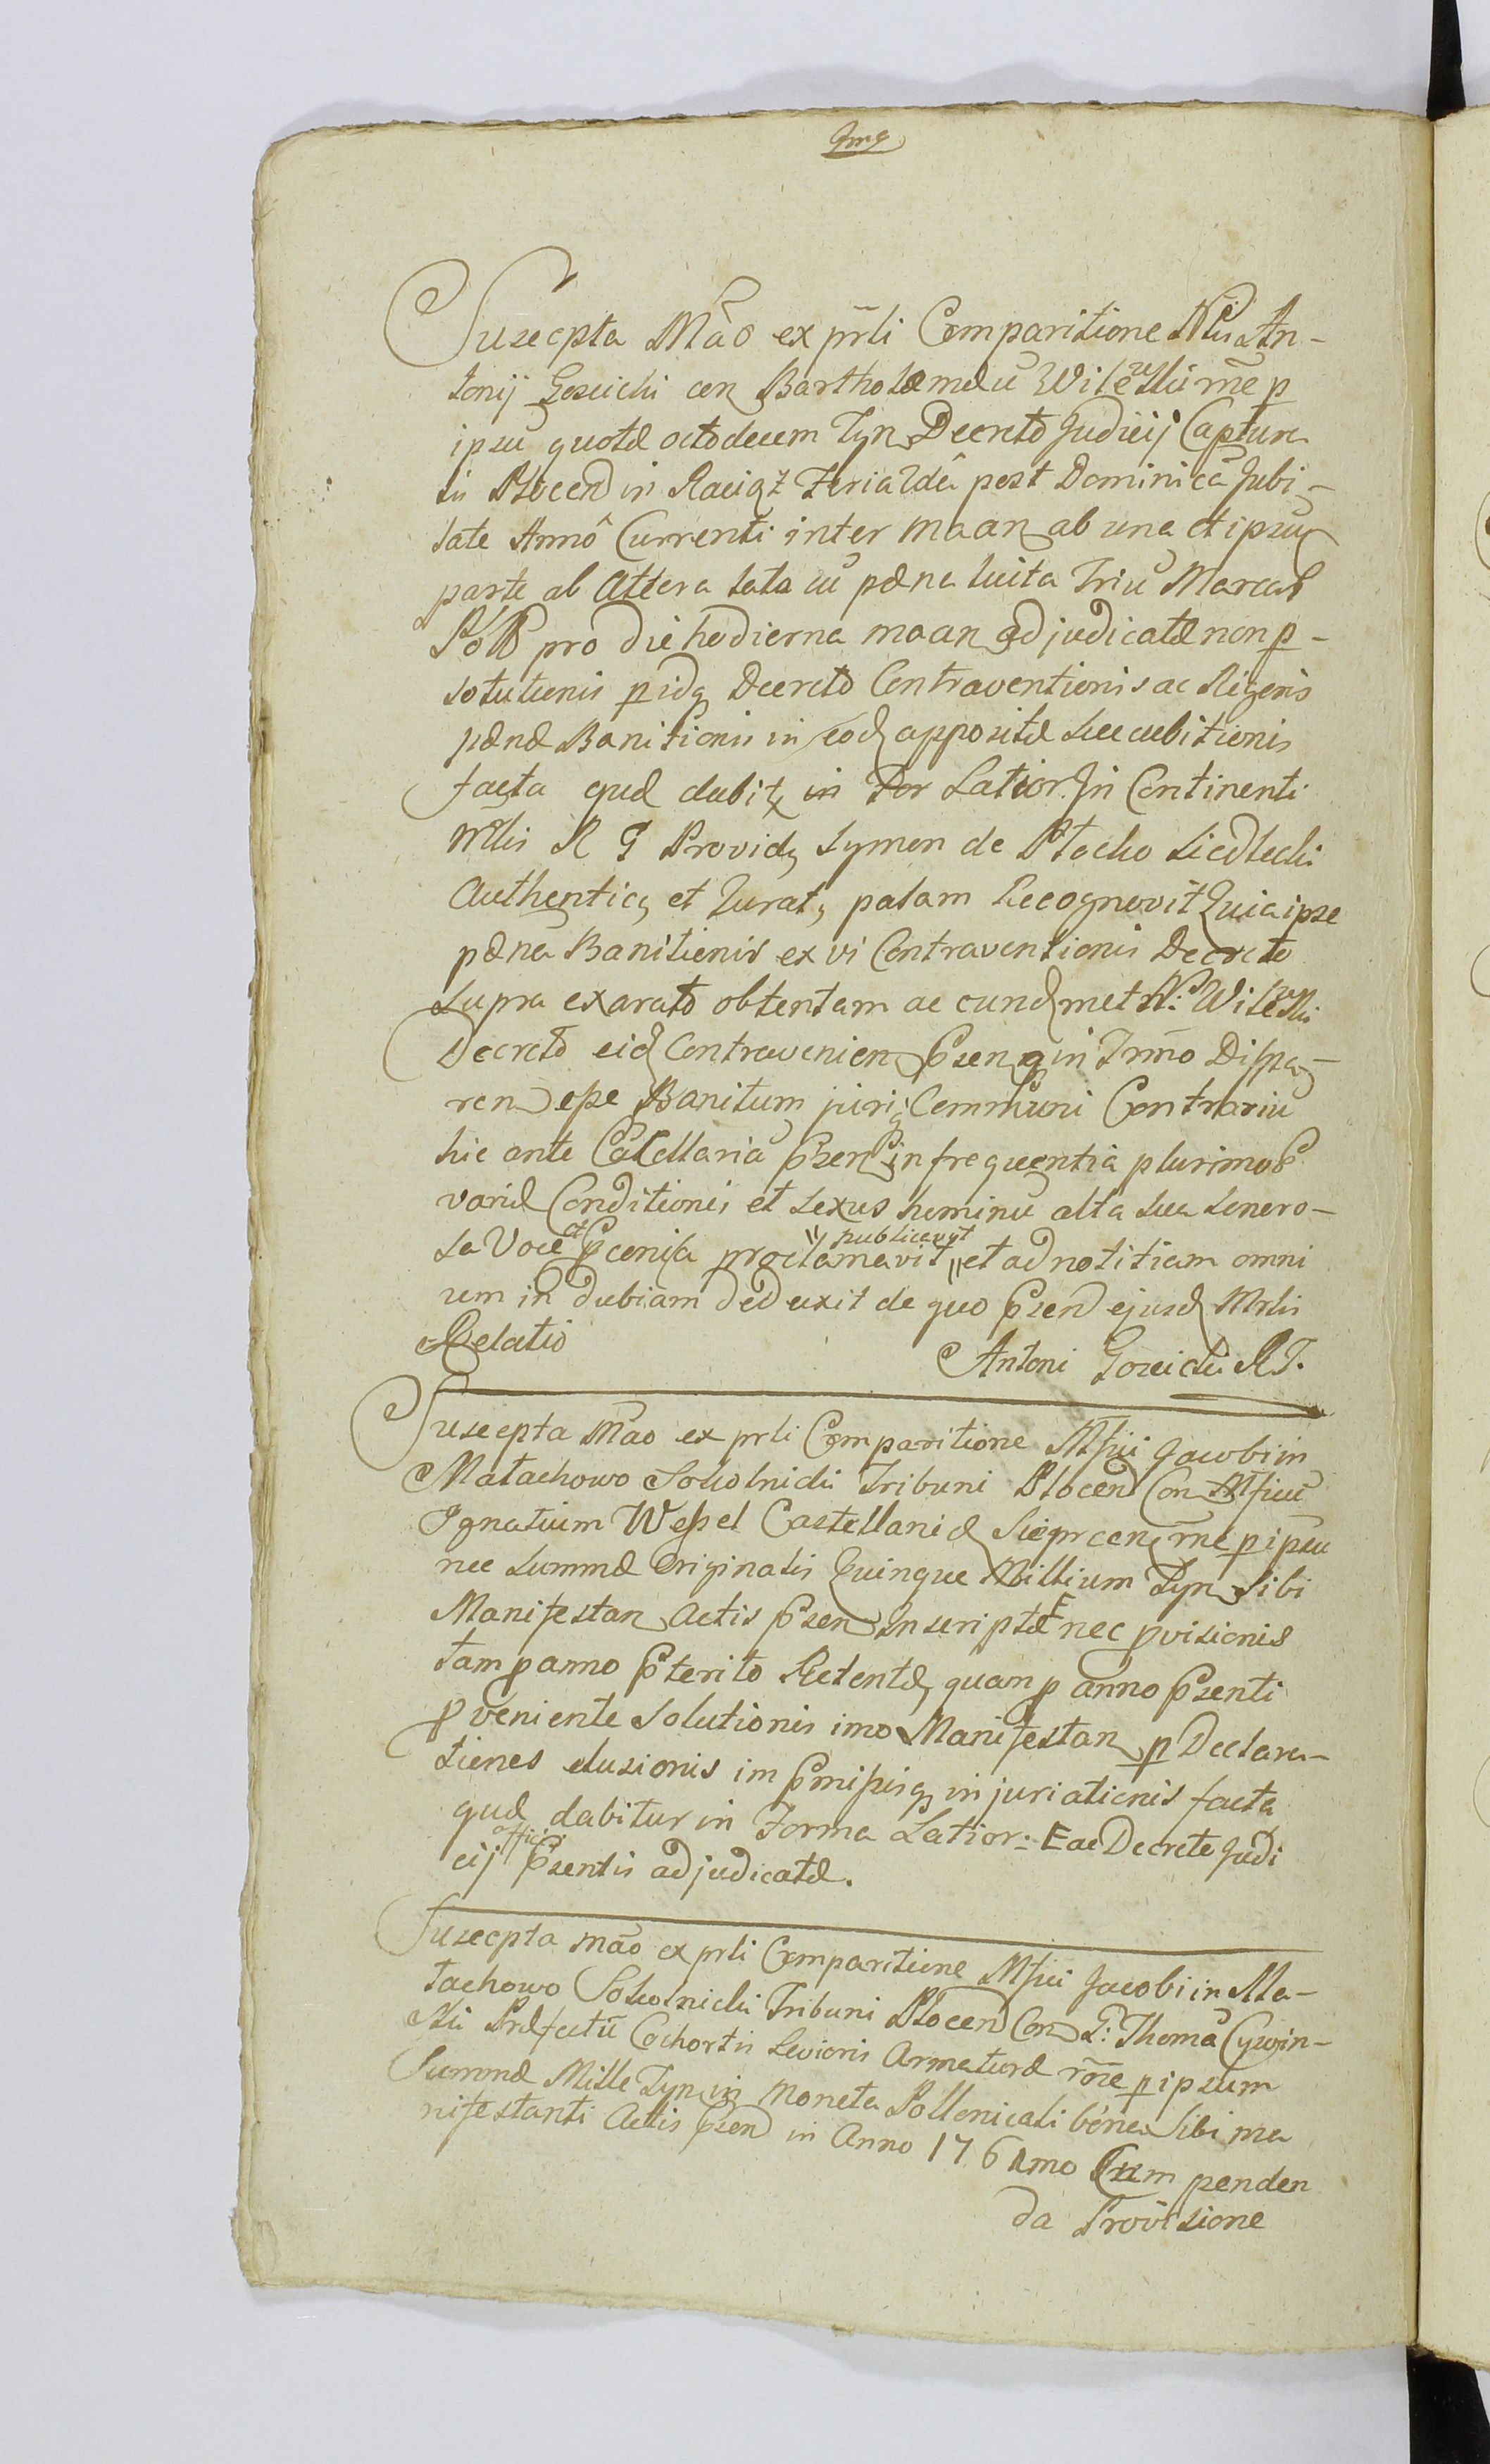 Suscepta Mão ex prli Comparitione Nlis An-
tonij Goscicki con Bartholomæũ Wilczewski rne p
ipsũ quotæ octodecem Tyn Decreto Judicij Captura
lis Plocen in Raciąz Feria 2dâ post Dominicã Jubi-
late Annô Currenti inter maan ab una et ipsũ
parte ab altera lata cũ pæna luita Triũ Marcar
Pol pro die hodierna maan adjudicatæ non p-
solutionis pidq Decreto Contraventionis ac Rigoris
pænæ Banitionis in eod appositæ succubitionis
facta quæ dabitr in For Latior. In Continenti
Mrlis R G Providq Symon de Płocko Siedlecki
Authenticq et Juratq palam Recognovit Quia ipse
pænã Banitionis ex vi Contraventionis Decreto
supra exarato obtentam ac eundmet N: Wilczewski
Decreto eid Contravenien Psen q in Trmno Dispa-
ren esse Banitum juriq Communi Contrariũ
hic ante Cacellariã Psen in frequentia plurimor
variæ Conditionis et sexus hominũ alta sua sonoro-
sa Voce et Pconisa proclamavit publicavit et ad notitiam omni
um in dubiam deduxit de quo Psen ejusd Mrlis
Relatio
Antoni Goscicki R J.
Suscepta Mão ex prli Comparitione Mfici Jacobi in
Małachowo Sokolnicki Tribuni Plocen Con Mficũ
Ignatium Wessel Castellanid Sieprcen rne p ipsũ
nec summæ Originalis Quinque Millium Tyn sibi
Manifestan Actis Psen Inscriptæ F nec pvisionis
tam p anno Pterito Retentæ, quam p anno Psenti
pveniente solutionis imo Manifestan p Declara-
tiones elusionis im Pmissisq injuriationis facta
quæ dabitur in Forma Latior: F ac Decreto Judi
cij officij Psentis adjudicatæ.
Suscepta mão ex prli Comparitione Mfici Jacobi in Ma-
łachowo Sokolnicki Tribuni Plocen Con G: Thomã Cywin-
ski Præfectũ Cohortis Levioris Armaturæ rne p ipsum
Summæ Mille Tyn in moneta Pollonicali bona sibi ma
nifestanti Actis Psen in Anno 1761mo Cum penden
da Provisione